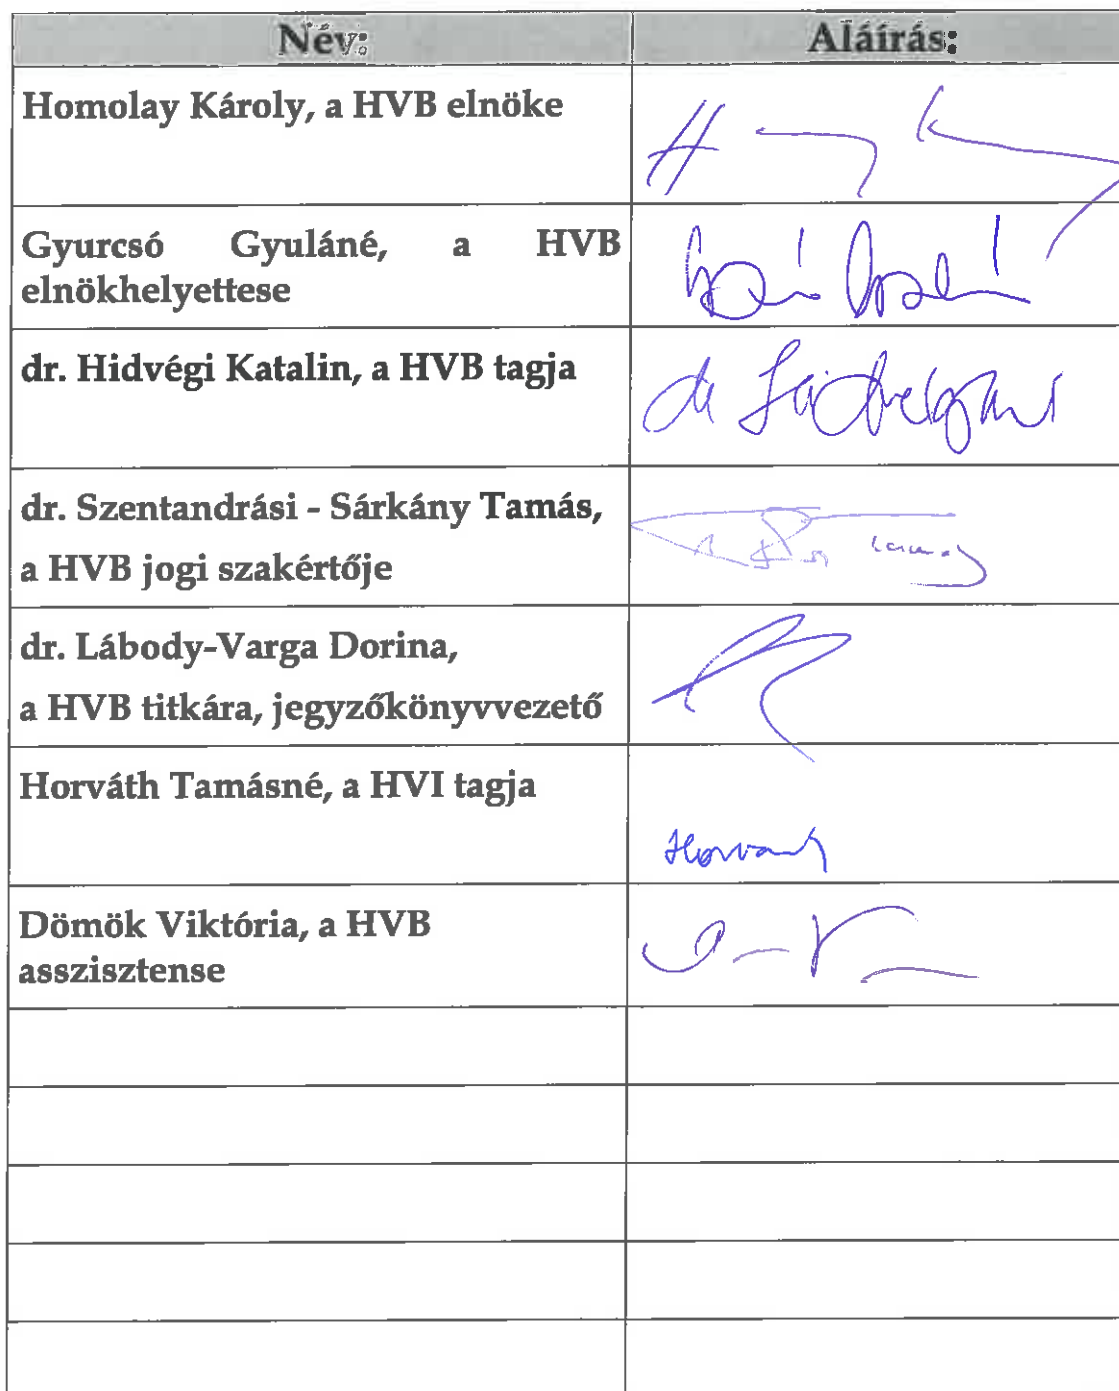 Név: Aláírás:
Homolay Károly, a HVB elnöke
Gyurcsó Gyuláné, a HVB
elnökhelyettese
dr. Hidvégi Katalin, a HVB tagja
dr. Szentandrási - Sárkány Tamás,
a HVB jogi szakértője
dr. Lábody-Varga Dorina,
a HVB titkára, jegyzőkönyvvezető
Horváth Tamásné, a HVI tagja
Horváth
Dömök Viktória, a HVB
asszisztense